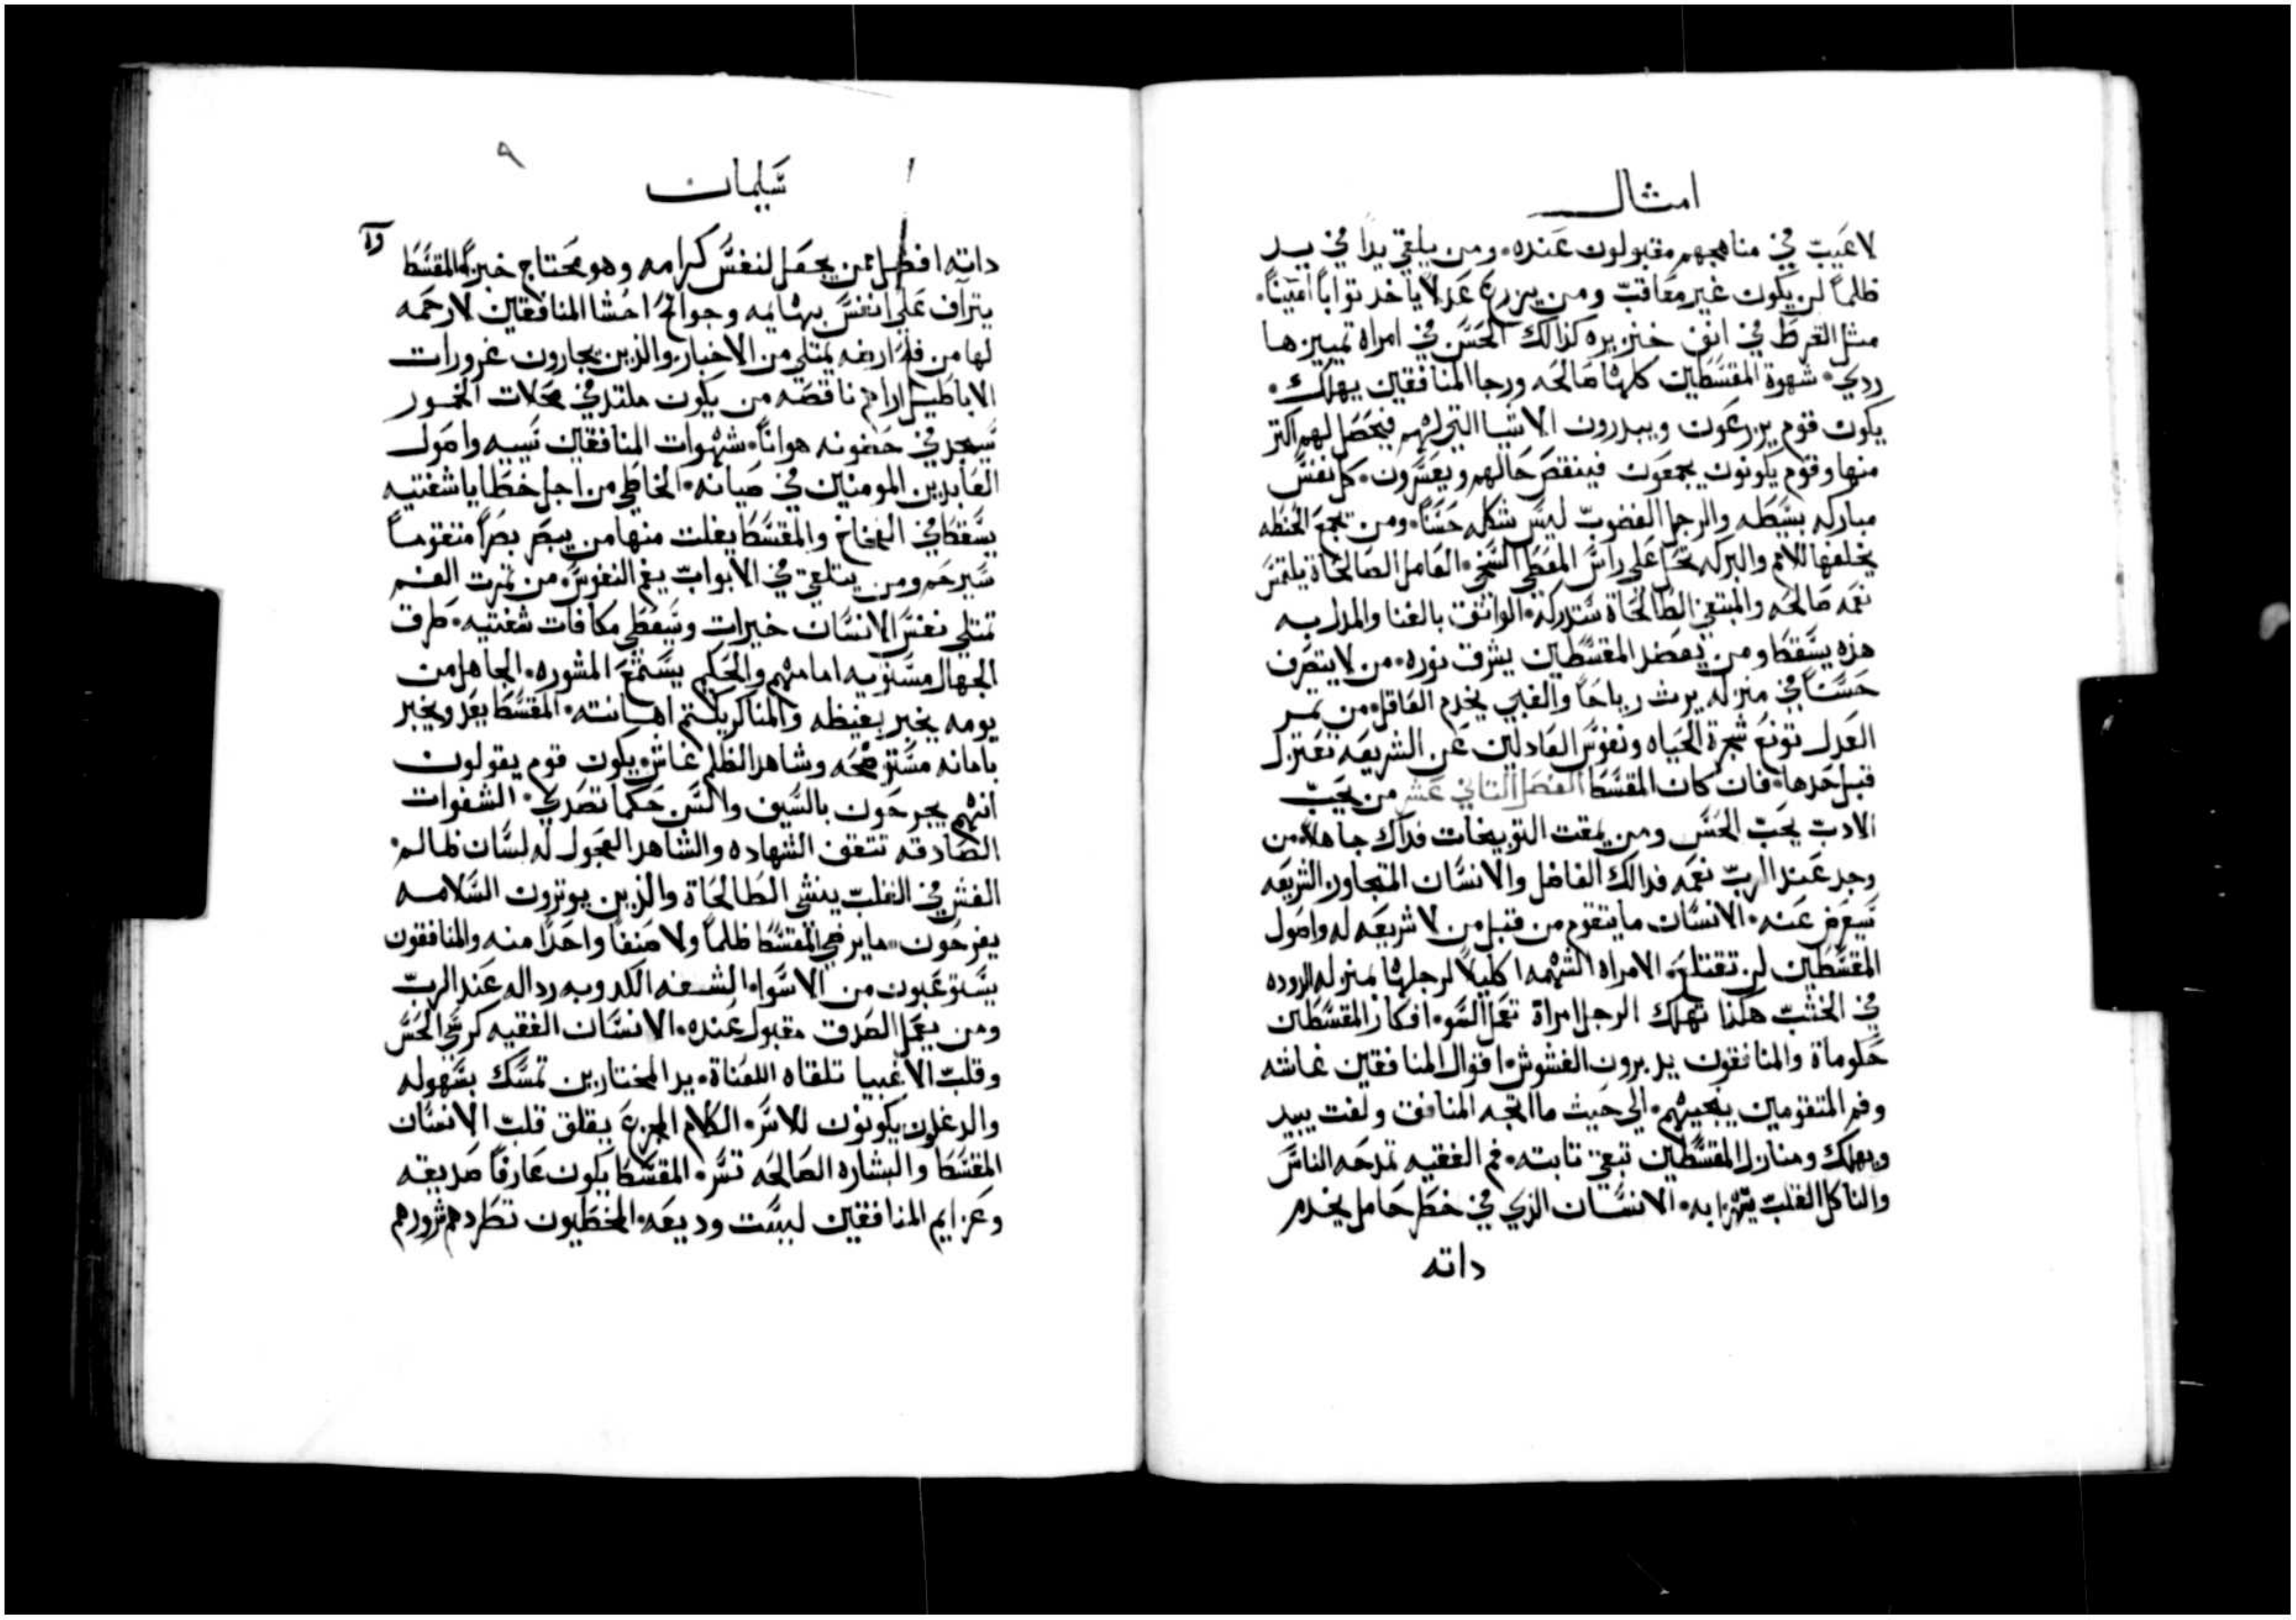 امثال
لا عيب في مناهجهم مقبولون عنده، ومن يلقي يداً في يد
ظلماً لن يكون غير معاقب ومن يزرع عدلا ياخد توابا امينا.
مثل القرط في انف خنزيره كذالك الحسن في امراه تمييزها
ردي، شهوة المقسطين كلها صالحه ورجا المنافقين يهلك.
يكون قوم يزرعون ويبدرون الاشيا التي لهم فيحصل لهم اكثر
منها وقوم يكونون يجمعون فينقص حالهم ويعسرون، كل نفس
مباركه بسطه والرجل الغضوب ليس شكله حسنا، ومن يجمع الحنطه
يخلفها للامم والبركه تحل علي راس المعطي السخي، العامل الصالحاة يلتمس
نعمه صالحه والمبتغي الطالحاة ستدركه، الواثق بالغنا والمدل به
هذه يسقط ومن يعضد المقسطين يشرق نوره، من لا يتصرف
حسنا في منزله يرث رياحا والغبي يخدم العاقل، من ثمر
العدل تونع شجرة الحياه ونفوس العادلين عن الشريعه تعتزل
قبل حدها، فان كان المقسط الفصل التاني عشر من يحب
الادب يحب الحس ومن يمقت التوبيخات فداك جاهلا، من
وجد عند الرب نعمه فدالك الفاضل والانسان المتجاوز الشريعه
سيعرض عنه، الانسان ما يتقوم من قبل من لا شريعه له واصول
المقسطين لن تقتلع، الامراه الشهمه اكليلا لرجلها بمنزله الدوده
في الخشب هكذا تهلك الرجل امراة تعمل السو، افكار المقسطين
حكوماة والمنافقون يدبرون الغشوش، اقوال المنافقين غاشه
وفم المتقومين ينجيهم، الي حيث ما اتجه المنافق ولفت يبيد
ويهلك ومنازل المقسطين تبقي ثابته، فم الفقيه تمدحه الناس
والناكل القلب يتهزا به، الانسان الذي في خطر حامل يخدم
داته
٩
سليمان
داته افضل من يجعل لنفس كرامه وهو محتاج خبزا، المقسط
يتراف على انفس بهايمه وجوانح احشا المنافقين لا رحمه
لها من فلح ارضه يمتلي من الاخباز، والذين يجارون غرورات
الاباطيل اراهم ناقصه من يكون ملتد في محلات الخمور
سيجد في حصونه هوانا، شهوات المنافقين نسيبه واصول
العابدين المومنين في صيانه، الخاطي من اجل خطايا شفتيه
يسقط في الفخاخ والمقسط يفلت منها من يبصر بصرا متقوما
سيرحم ومن يتلقي في الابواب يغم النفوس، من تمرت الفم
تمتلي نفس الانسان خيرات وسيعطي مكافات شفتيه، طرق
الجهال مستويه امامهم والحكيم يستمع المشوره، الجاهل من
يومه يخبر بغيظه والمناكر يكتم اهانته، المقسط يعد ويخبر
بامانه مستوضحه وشاهد الظلم غاش، يكون قوم يقولون
انهم يجرحون بالسيف والسن حكما تصدي، الشفوات
الصادقه تتفق الشهاده والشاهد العجول له لسان ظالم.
الغش في القلب ينشي الطالحاة والذين يوتزون السلامه
يفرحون، ما يرضي المقسط ظلما ولا صنفا واحدا منه والمنافقون
يستوعبون من الاسوا، الشفه الكدوبه رداله عند الرب
ومن يعمل الصدق مقبول عنده، الانسان الفقيه كرسي الحس
وقلب الاغبيا تلقاه اللعناة، يد المختارين تمسك بسهوله
والدغلون يكونون للاسر، الكلام المجزع يقلق قلب الانسان
المقسط والبشاره الصالحه تسره المقسط يكون عارفا صديقه
وعزايم المنافقين ليست وديعه، المخطيون تطردهم شرورهم